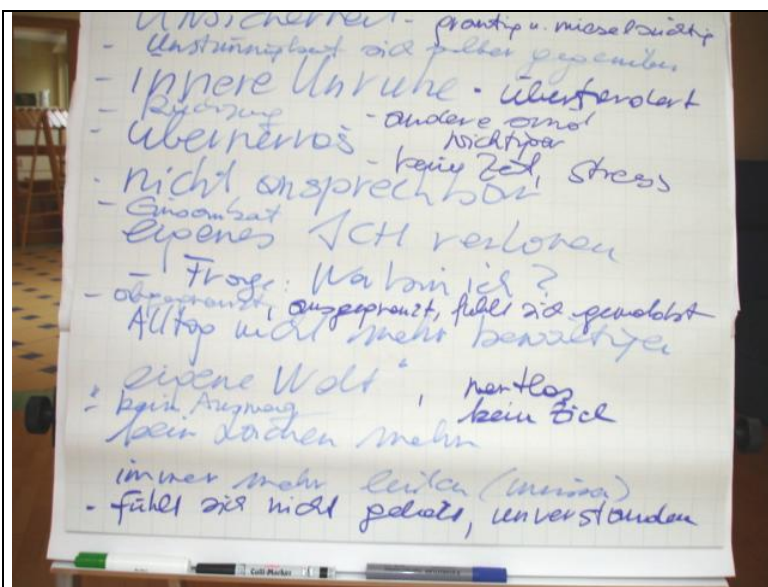 Unsicherheit - grantig u. mieselsüchtig
- Unstimmigkeit sich selber gegenüber
- Innere Unruhe - überfordert
- Rückzug - andere sind
- übernervös nichtiger
- keine Zeit, Stress
- nicht ansprechbar
- Einsamkeit
eigenes ICH verloren
- Frage: Wo bin ich?
- abgegrenzt, ausgegrenzt, fühlt sich gemobbt
Alltag nicht mehr bewältigen
"eigene Welt", wertlos
- kein Ausweg kein Ziel
kein Lachen mehr
immer mehr leisten (müssen)
- fühlt sich nicht geliebt, unverstanden
Cult-Marker